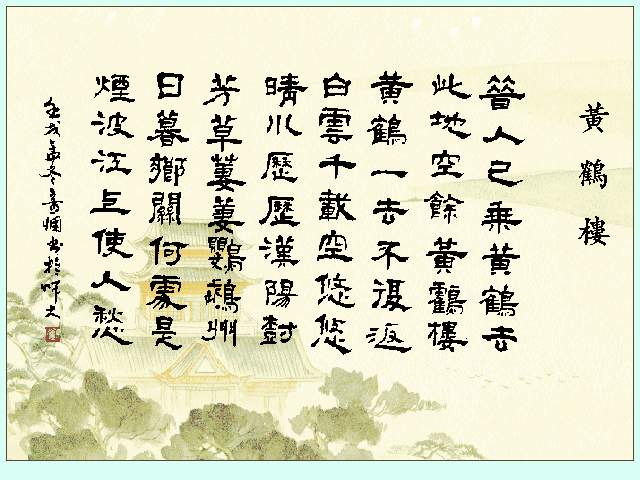 黃鶴樓
昔人已乘黃鶴去
此地空餘黃鶴樓
黃鶴一去不復返
白雲千載空悠悠
晴川歷歷漢陽樹
芳草萋萋鸚鵡洲
日暮鄉關何處是
煙波江上使人愁
壬戌年冬书於師大